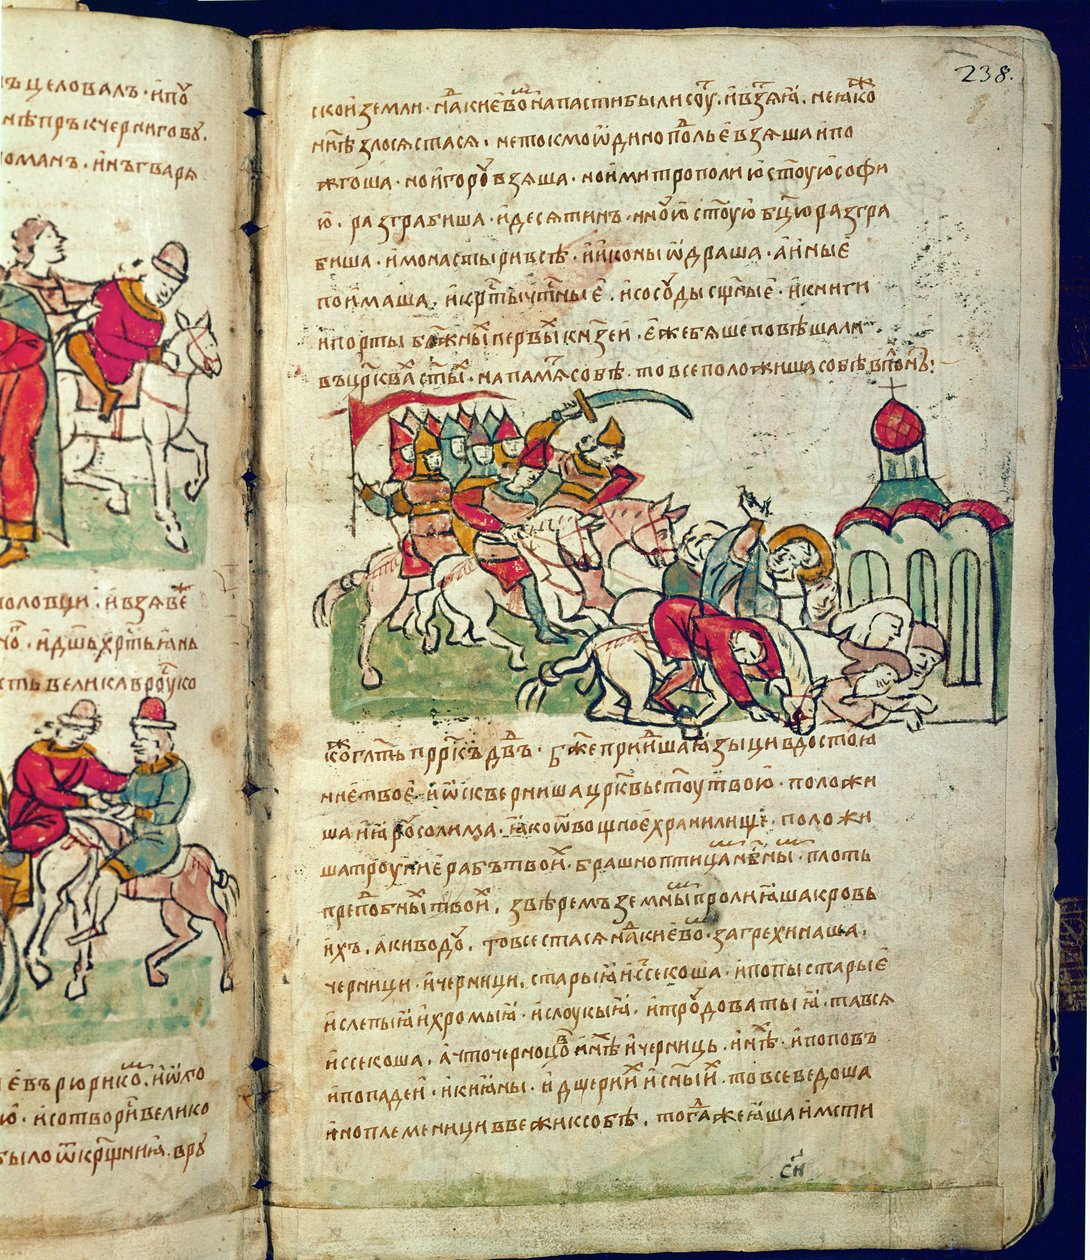 ъ целовалъ · и поу
нѣпръ к чернигову ·
романъ · и нъгваря
половци · и взяве
но · и дш҃ь хрс҇тьꙗнь
сть велика в роуско
е въ рюрико · и ѿло
ю · и сотвори велико
было ѿ крщ҃ниꙗ · вру
238.
скои земли · над киевом напасти были соуⷮ · и взятьꙗ · не ꙗкоже
нн҃ѣ зло ся стася · не токмо ѿдино подолье взяша и по
жгоша · но и гороу взяша · но и митрополию ст҃оую софи
ю · разграбиша · и десятиньноую ст҃оую бц҃ю разгра
биша · и монастыри всѣ · и иконы ѡдраша · а иные
поимаша · и крс҇ты чтс҇ные · и сосоуды сщ҃ные · и книги
и порты блж҃ныⷯ первыⷯ кн҃зеи · еже бяше повѣшали
въ црк҃ваⷯ ст҃ыⷯ · на память собѣ · то все положиша собѣ в полонъ :
ꙗкоже гл҃ть прр҃къ дв҃ъ · бж҃е приидоша ꙗзыци в достоꙗ
ние твое · и ѡскверниша црк҃вь ст҃оую твою · положи
ша иеросолима · ꙗко ѡвощное хранилище · положи
ша троупие рабъ твоиⷯ · брашно птицамъ нбс҇ным · плоть
преподобныⷯ твоиⷯ · звѣремъ земным пролиꙗша кровь
ихъ · аки водоу · то все стася над киевом · за грехи наша ·
черници · и черници · старыꙗ иссекоша · и попы старые
и слепыꙗ и хромыꙗ · и слоукыꙗ · и троудоватыꙗ · та вся
иссекоша · а что черноцовъ инѣⷯ и черниць · инѣⷯ · и поповъ
и попадеи · и киꙗны · и дщери иⷯ и сн҃ы иⷯ · то все ведоша
иноплеменици в вежи к собѣ · тогда же ꙗша и мсти
сли